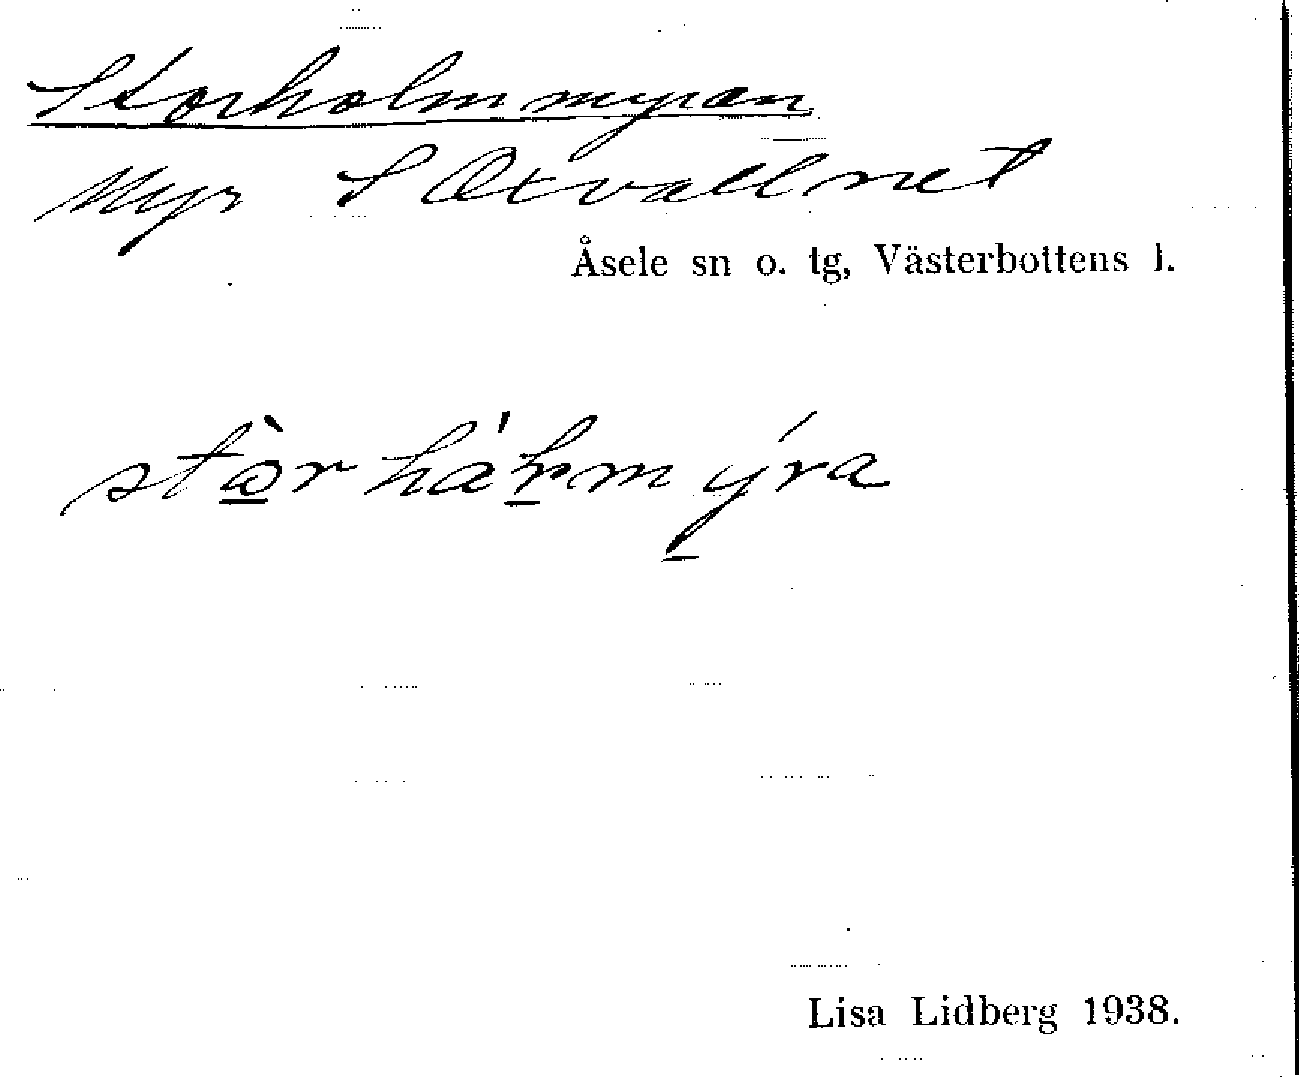 Storholmmyran
Myr S Oxvallnet
Åsele sn o. tg, Västerbottens l.
Lisa Lidberg 1938.